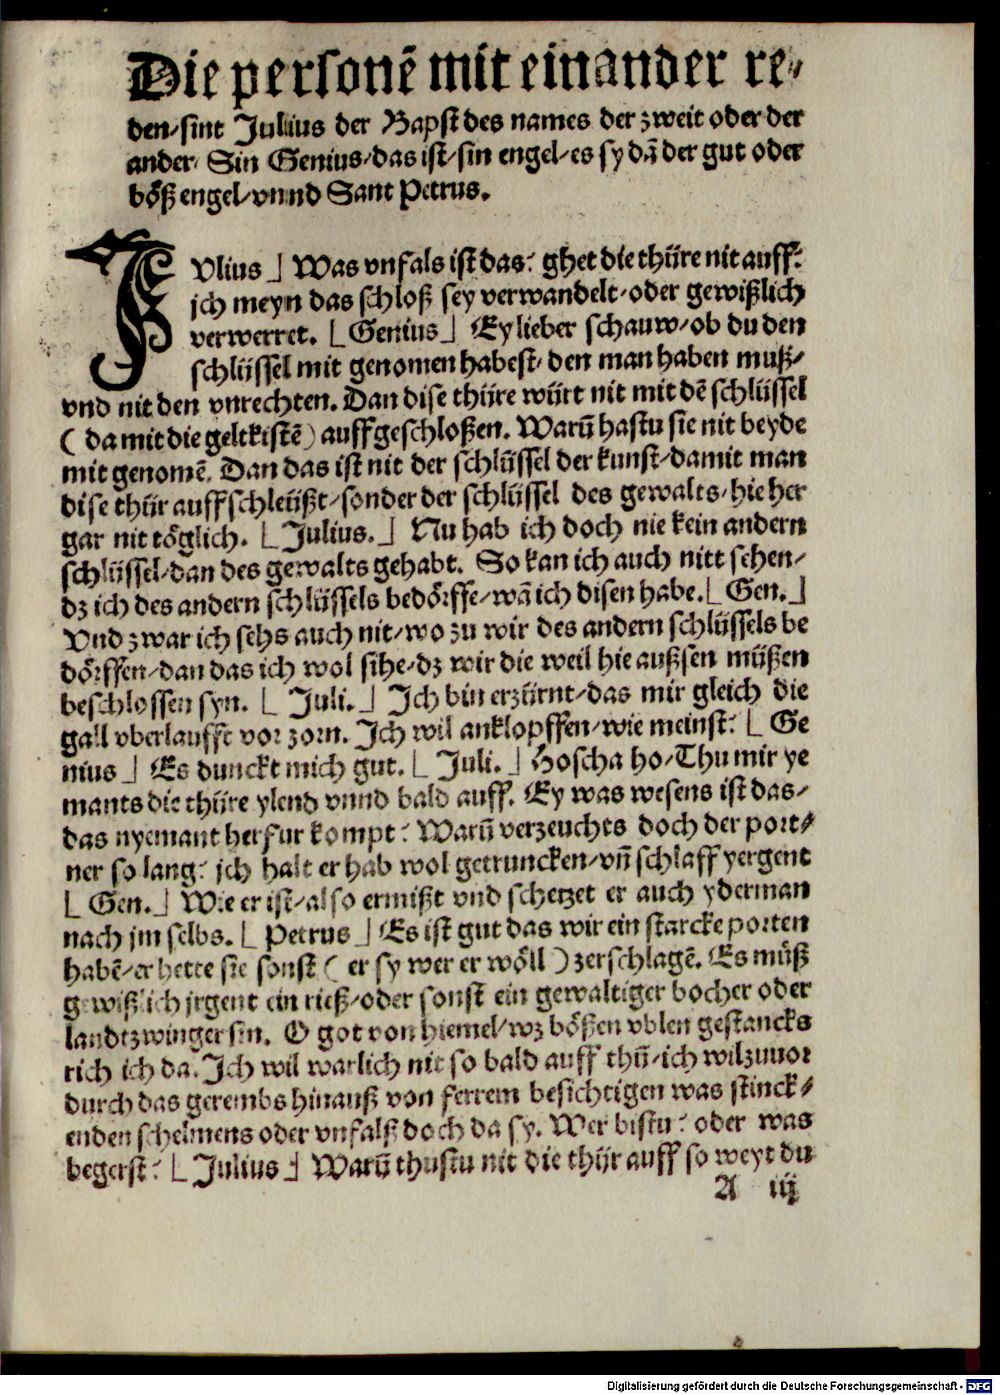 Die personē mit einander re⸗
den/sint Julius der Bapst des names der zweit oder der
ander/ Sin Genius/das ist/sin engel/es sy dā der gut oder
böß engel/vnnd Sant Petrus.
JVlius ⌋ Was vnfals ist das? ghet die thüre nit auff?
jch meyn das schloß sey verwandelt/oder gewißlich
verwerret. ⌊Genius⌋ Ey lieber schauw/ob du den
schlüssel mit genomen habest/ den man haben muß/
vnd nit den vnrechten. Dan dise thüre würt nit mit dē schlüssel
( da mit die geltkistē ) auffgeschloßen. Warū hastu sie nit beyde
mit genomē. Dan das ist nit der schlüssel der kunst/damit man
dise thür auffschleüßt/sonder der schlüssel des gewalts/hie her
gar nit töglich. ⌊Julius.⌋ Nu hab ich doch nie kein andern
schlüssel/dan des gewalts gehabt. So kan ich auch nitt sehen/
dz ich des andern schlüssels bedörffe/wā ich disen habe.⌊Gen.⌋
Vnd zwar ich sehs auch nit/wo zu wir des andern schlüssels be
dörffen/dan das ich wol sihe/dz wir die weil hie außsen müßen
beschlossen syn. ⌊ Juli.⌋ Ich bin erzürnt/das mir gleich die
gall vberlauffe vor zorn. Ich wil anklopffen/wie meinst? ⌊ Ge
nius ⌋ Es dunckt mich gut. ⌊ Juli.⌋ Hoscha ho/Thu mir ye
mants die thüre ylend vnnd bald auff. Ey was wesens ist das/
das nyemant herfur kompt? Warū verzeuchts doch der port⸗
ner so lang? jch halt er hab wol getruncken/vn̄ schlaff yergent
⌊ Gen.⌋ Wie er ist/also ermißt vnd schetzet er auch yderman
nach jm selbs. ⌊ Petrus ⌋ Es ist gut das wir ein starcke porten
habē/er hette sie sonst ( er sy wer er wöll ) zerschlagē. Es müß
gewißlich jrgent ein rieß/oder sonst ein gewaltiger bocher oder
landtzwinger sin. O got von hiemel/wz bößen vblen gestancks
rich ich da. Ich wil warlich nit so bald auff thū/ich wil zuuor
durch das gerembs hinauß von ferrem besichtigen was stinck⸗
enden schelmens oder vnfalß doch da sy. Wer bistu? oder was
begerst? ⌊Julius⌋ Warū thustu nit die thür auff so weyt du
A iij
Digitalisierung gefördert durch die Deutsche Forschungsgemeinschaft - DFG